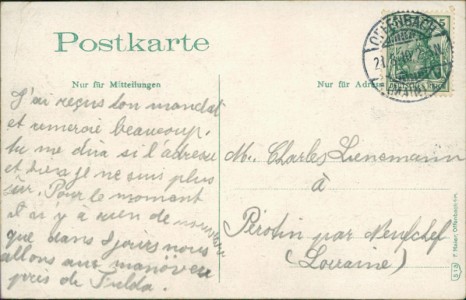 Postkarte
Nur für Mitteilungen
Nur für Adresse
OFFENBACH
(MAIN)
5
J'ai reçus ton mandat
et remercie beaucoup.
tu me dira si l'adresse
je ne suis plus
sûr. Pour le moment
il n'y a rien de nouveau
que dans 8 jours nous
allons aux manöver
près de Fulda.
M. Charles Lienemann
à
Pérotin par Neufchef
(Lorraine)